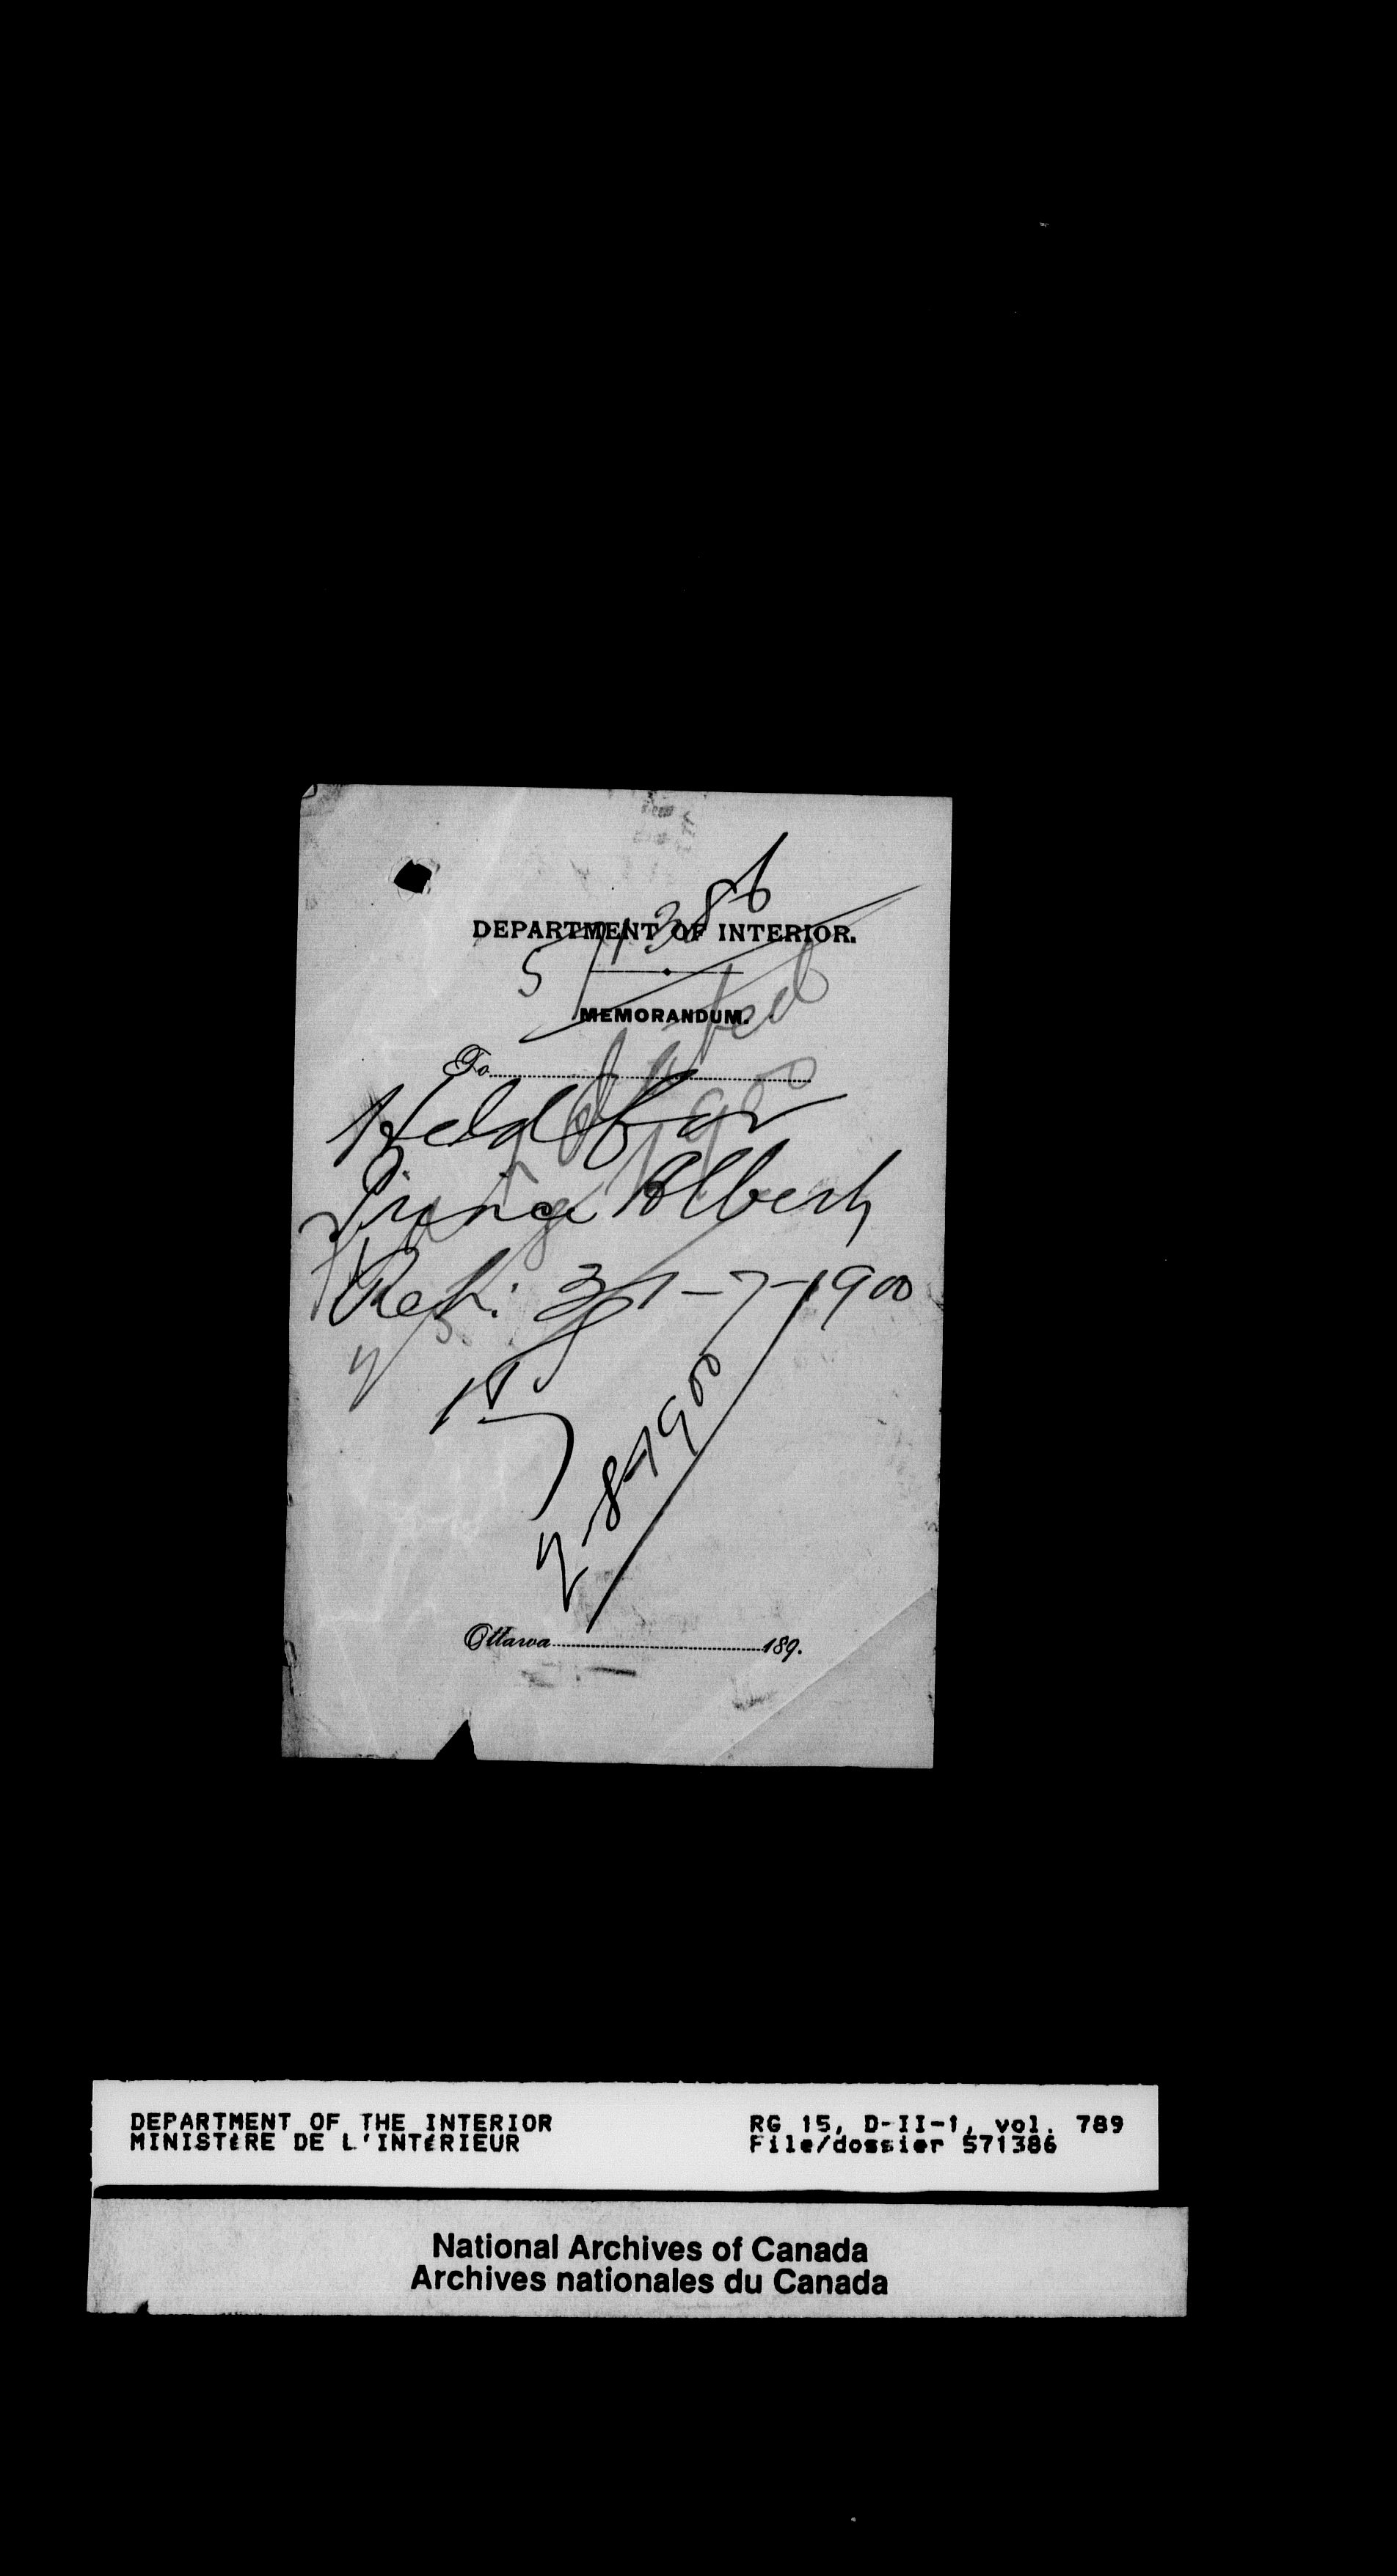 571386
DEPARTMENT OF INTERIOR.
MEMORANDUM.
To
Held for
Prince Albert
Ret: 31-7-1900
2-8-1900
Ottawa 189.
DEPARTMENT OF THE INTERIOR RG 15, D-II-1, vol. 789
MINISTèRE DE L'INTéRIEUR File/dossier 571386
National Archives of Canada
Archives nationales du Canada